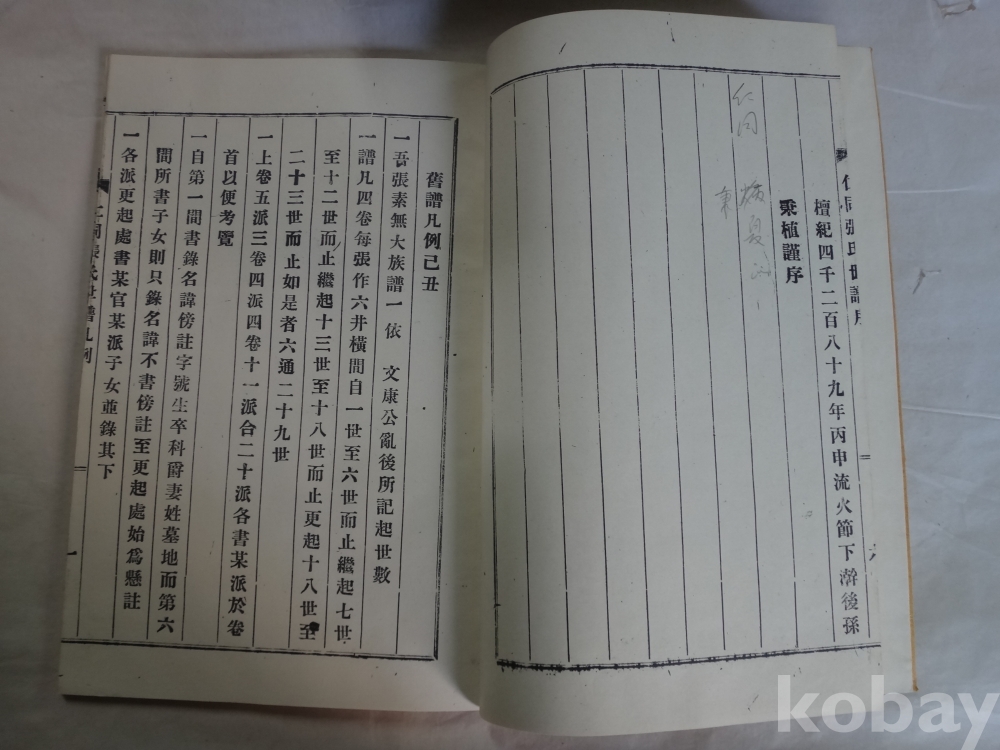 仁同張氏世譜序
檀紀四千二百八十九年丙申流火節下澣後孫
秉植謹序
仁同
舊譜凡例己丑
一吾張素無大族譜一依 文康公亂後所記起世數
一譜凡四卷每張作六井橫間自一世至六世而止繼起七世
至十二世而止繼起十三世至十八世而止更起十八世至
二十三世而止如是者六通二十九世
一上卷五派三卷四派四卷十一派合二十派各書某派於卷
首以便考覽
一自第一間書錄名諱傍註字號生卒科爵妻姓墓地而第六
間所書子女則只錄名諱不書傍註至更起處始爲懸註
一各派更起處書某官某派子女並錄其下
仁同張氏世譜凡例
一
kobay